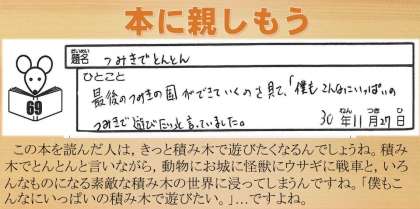 本に親しもう
だいめい
題名 つみきでとんとん
ひとこと
最後のつみきの国ができていくのを見て、「僕もこんなにいっぱいの
つみきで遊びたい」と言っていました。
ねん つき ひ
30年11月27日
69
この本を読んだ人は，きっと積み木で遊びたくなるんでしょうね。積み
木でとんとんと言いながら，動物にお城に怪獣にウサギに戦車と，いろ
んなものになる素敵な積み木の世界に浸ってしまうんですね。「僕もこ
んなにいっぱいの積み木で遊びたい。」…ですよね。